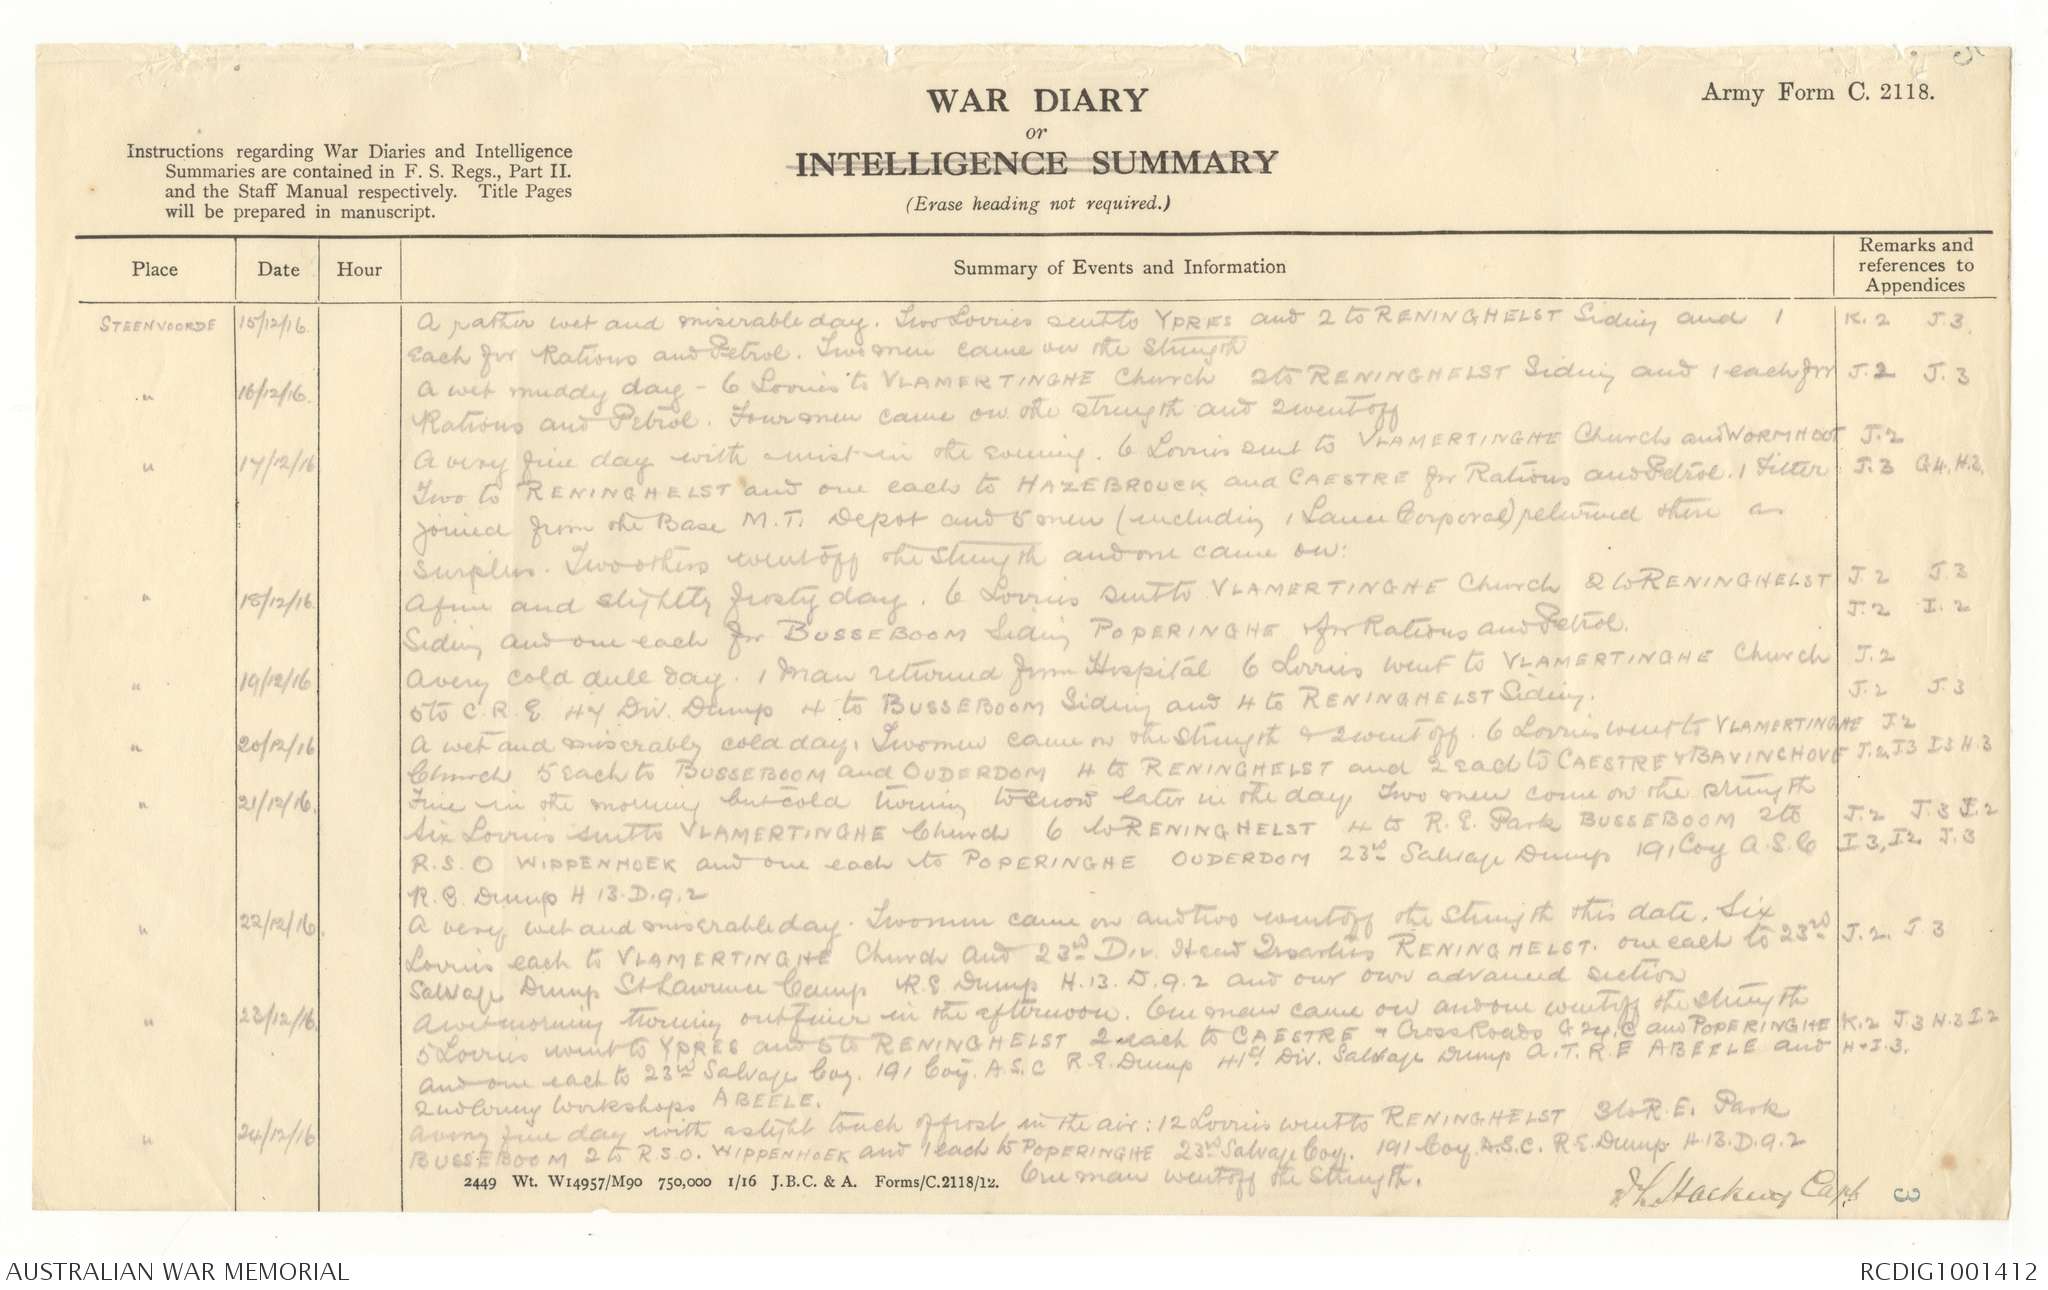 Army Form C. 2118.
WAR DIARY
or
INTELLIGENCE SUMMARY
(Erase heading not required.)
Instructions regarding War Diaries and Intelligence
Summaries are contained in F. S. Regs., Part II.
and the Staff Manual respectively. Title Pages
will be prepared in manuscript.
Place Date Hour Summary of Events and Information Remarks and references to Appendices
STEENVOORDE 15/12/16. A rather wet and miserable day. Two Lorries sent to YPRES and 2 to RENINGHELST Siding and 1 K.2 J.3.
each for Rations and Petrol. Two men came on the strength
" 16/12/16. A wet muddy day - 6 Lorries to VLAMERTINGHE Church 2 to RENINGHELST Siding and 1 each for J.2 J.3
Rations and Petrol. Four men came on the strength and 2 went off
" 17/12/16 A very fine day with a mist in the evening. 6 Lorries sent to VLAMERTINGHE Church and WORMHOUT J.2
Two to RENINGHELST and one each to HAZEBROUCK and CAESTRE for Rations and Petrol. 1 Fitter J.3 G4. H.3.
joined from the Base M.T. Depot and 5 men (including 1 Lance Corporal) returned there as
surplus. Two others went off the strength and one came on:
" 18/12/16. A fine and slightly frosty day. 6 Lorries sent to VLAMERTINGHE Church 2 to RENINGHELST J.2 J.3
Siding and one each for BUSSEBOOM Siding POPERINGHE & for Rations and Petrol. J.2 I.2
" 19/12/16 A very cold dull day. 1 man returned from Hospital 6 Lorries went to VLAMERTINGHE Church J.2
5 to C.R.E 47 Div. Dump 4 to BUSSEBOOM Siding and 4 to RENINGHELST Siding. J.2 J.3
" 20/12/16 A wet and miserably cold day. Two men came on the strength & 2 went off. 6 Lorries went to VLAMERTINGHE J.2
Church 5 each to BUSSEBOOM and OUDERDOM 4 to RENINGHELST and 2 each to CAESTRE & BAVINCHOVE J.2, J3 I3 H.3
" 21/12/16. Fine in the morning but cold turning to snow later in the day Two men come on the strength
Six Lorries sent to VLAMERTINGHE Church 6 to RENINGHELST 4 to R.E. Park BUSSEBOOM 2 to J.2 J.3 I.2
R.S.O WIPPENHOEK and one each to POPERINGHE OUDERDOM 23rd Salvage Dump 191 Coy A.S.C I3, I2 J.3
R.E. Dump H 13.D.9.2
" 22/12/16. A very wet and miserable day. Two men came on and two went off the strength this date. Six
Lorries each to VLAMERTINGHE Church and 23rd Div. Head Quarters RENINGHELST. one each to 23rd J.2. J.3
Salvage Dump St Lawrence Camp R.E Dump H.13.D.9.2 and our own advanced section
" 23/12/16. A wet morning turning out finer in the afternoon. One man came on and one went off the strength
5 Lorries went to YPRES and 5 to RENINGHELST 2 each to CAESTRE & Cross Roads G 24.C and POPERINGHE K.2 J.3 H.3 I.2
and one each to 23rd Salvage Coy. 191 Coy. A.S.C R.E. Dump 41st Div. Salvage Dump A.T.R.E ABEELE and H & I.3.
2nd Army Workshops ABEELE.
" 24/12/16 A very fine day with a slight touch of frost in the air: 12 Lorries went to RENINGHELST 3 to R.E. Park
BUSSEBOOM 2 to R.S.O. WIPPENHOEK and 1 each to POPERINGHE 23rd Salvage Coy. 191 Coy. A.S.C. R.E. Dump H.13.D.9.2
One man went off the Strength.
2449 Wt. W14957/M90 750,000 1/16 J.B.C. & A. Forms/C.2118/12.
Hacking Capt. 3
AUSTRALIAN WAR MEMORIAL RCDIG1001412